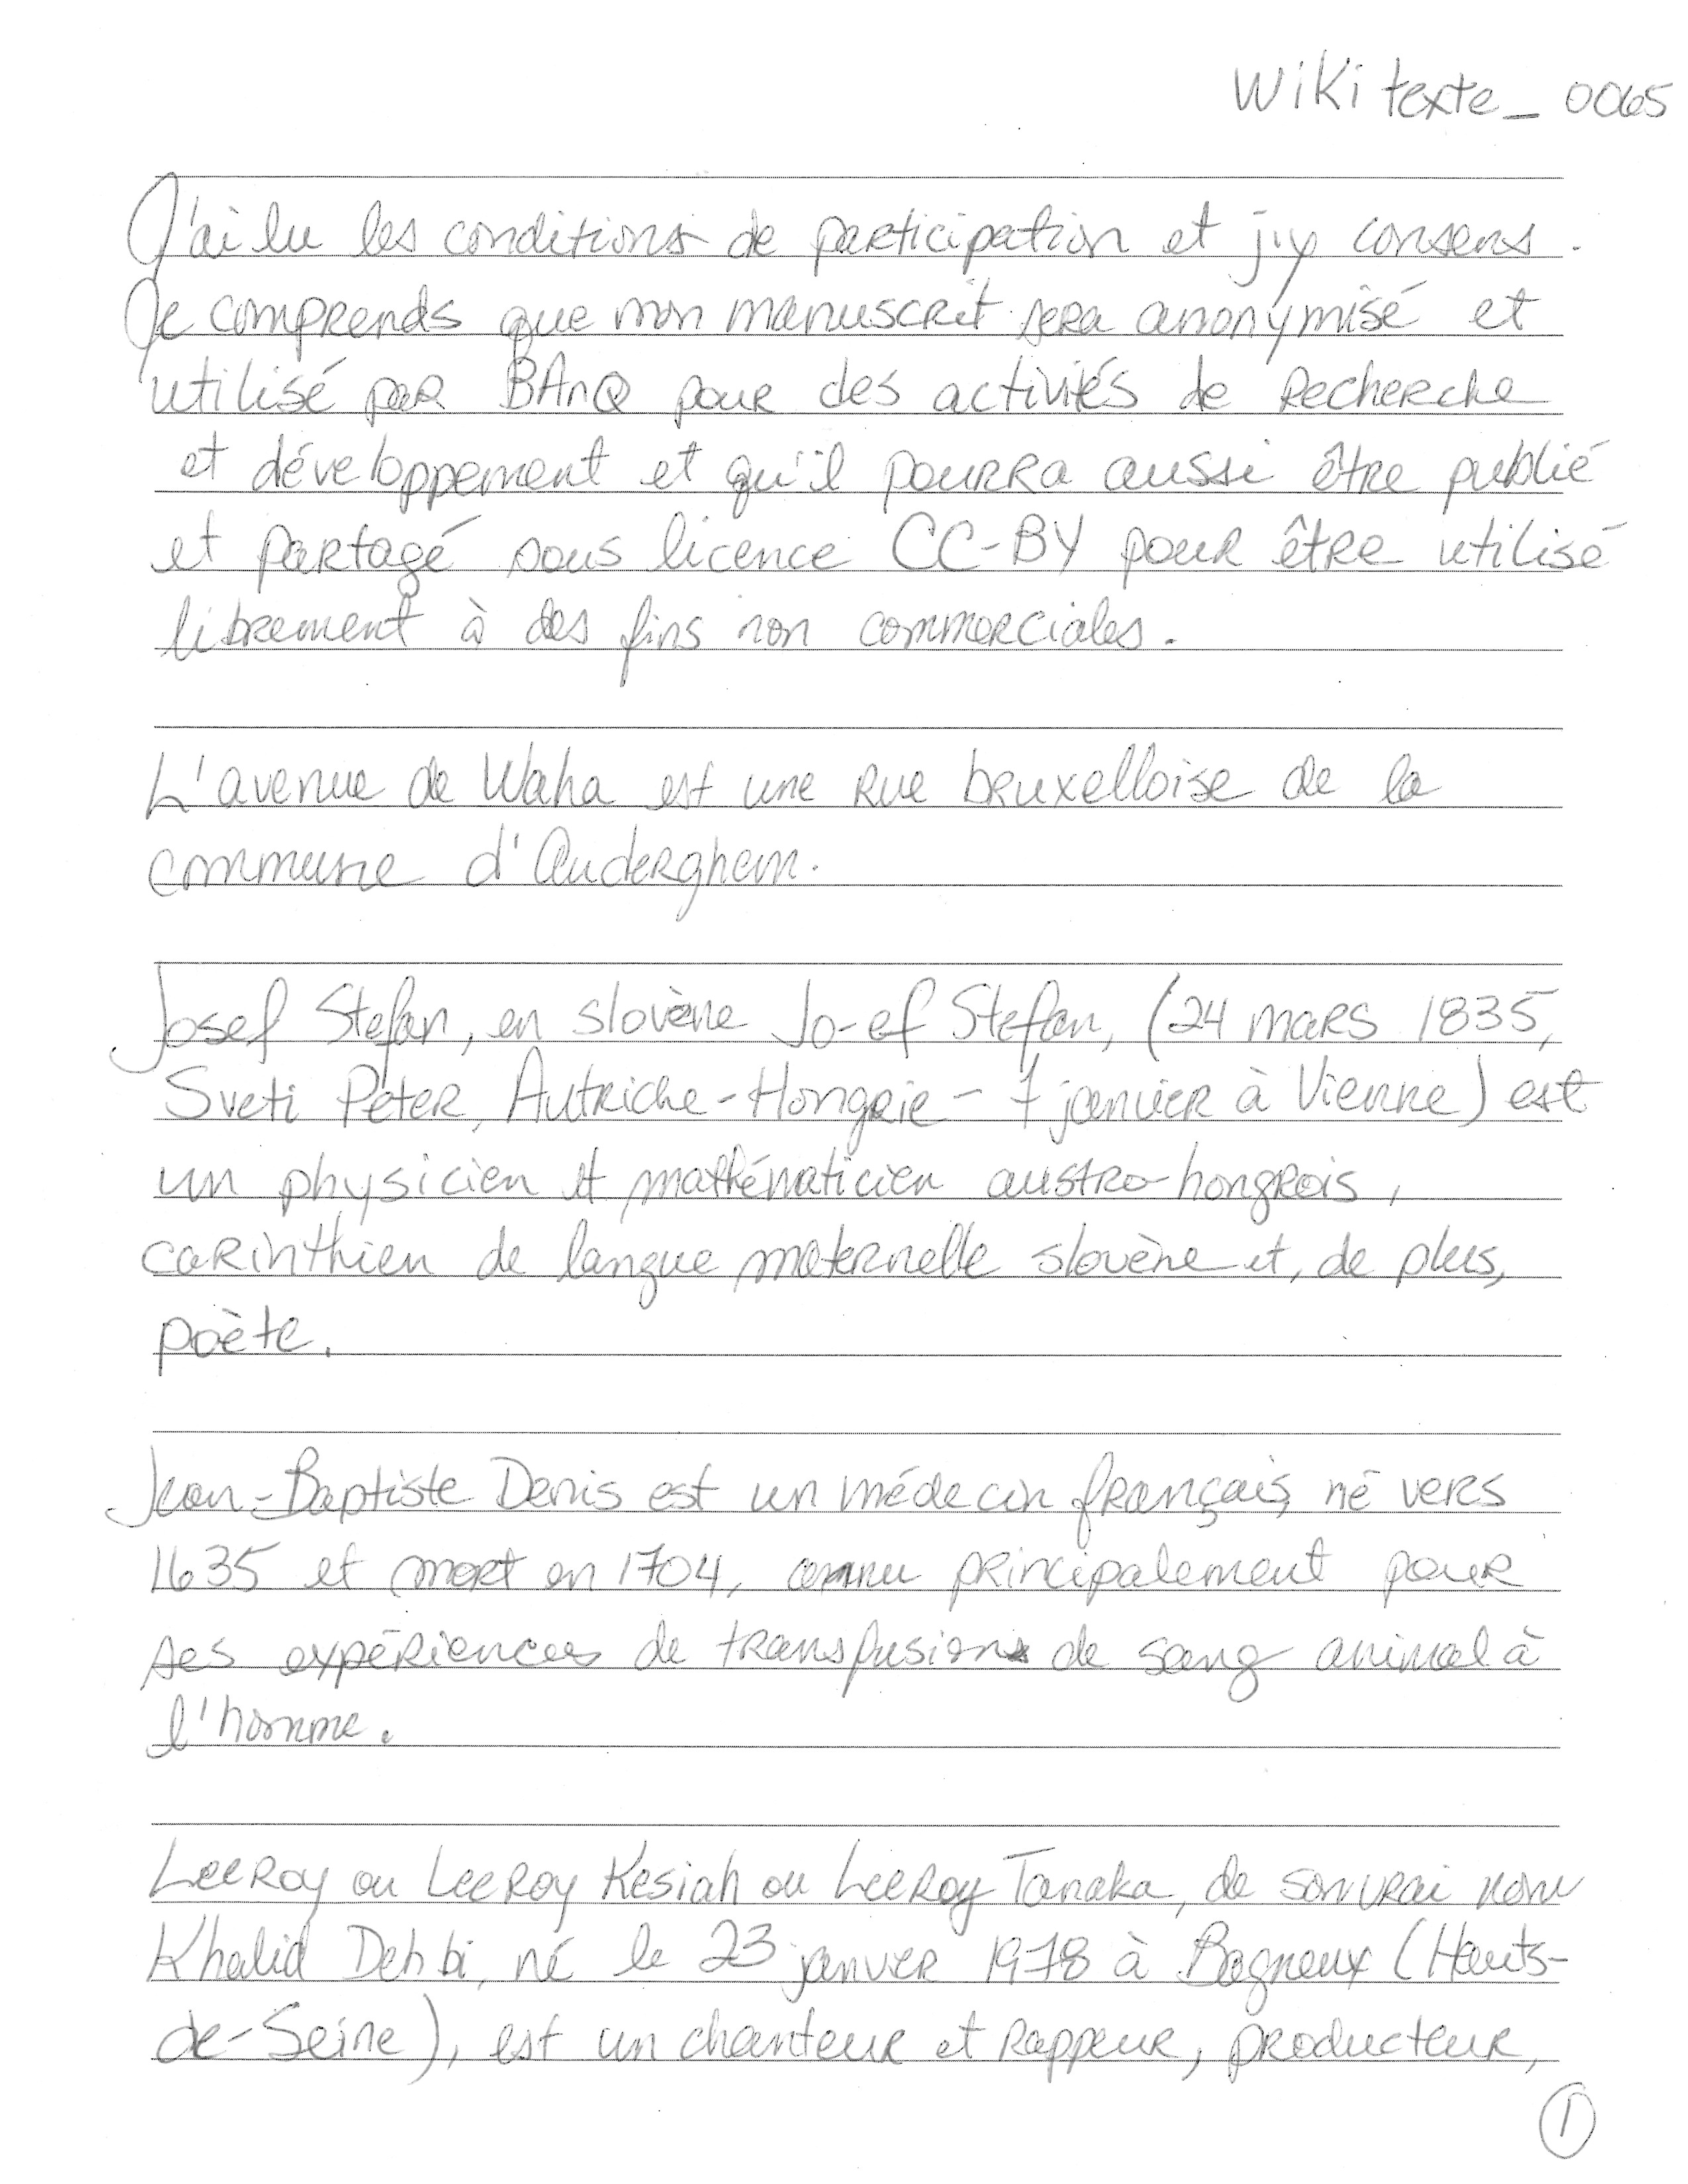 Wikitexte_0065
J'ai lu les conditions de participation et j'y consens.
Je comprends que mon manuscrit sera anonymisé et
utilisé par BAnQ pour des activités de recherche
et développement et qu'il pourra aussi être publié
et partagé sous licence CC-BY pour être utilisé
librement à des fins non commerciales.
L'avenue de Waha est une rue bruxelloise de la
commune d'Auderghem.
Josef Stefan, en slovène Jo-ef Stefan, (24 mars 1835,
Sveti Peter, Autriche-Hongrie - 7 janvier à Vienne) est
un physicien et mathématicien austro-hongrois,
carinthien de langue maternelle slovène et, de plus,
poète.
Jean-Baptiste Denis est un médecin français, né vers
1635 et mort en 1704, connu principalement pour
ses expériences de transfusions de sang animal à
l'homme.
LeeRoy ou LeeRoy Kesiah ou LeeRoy Tanaka, de son vrai nom
Khalid Dehbi, né le 23 janvier 1978 à Bagneux (Hauts-
de-Seine), est un chanteur et rappeur, producteur,
1